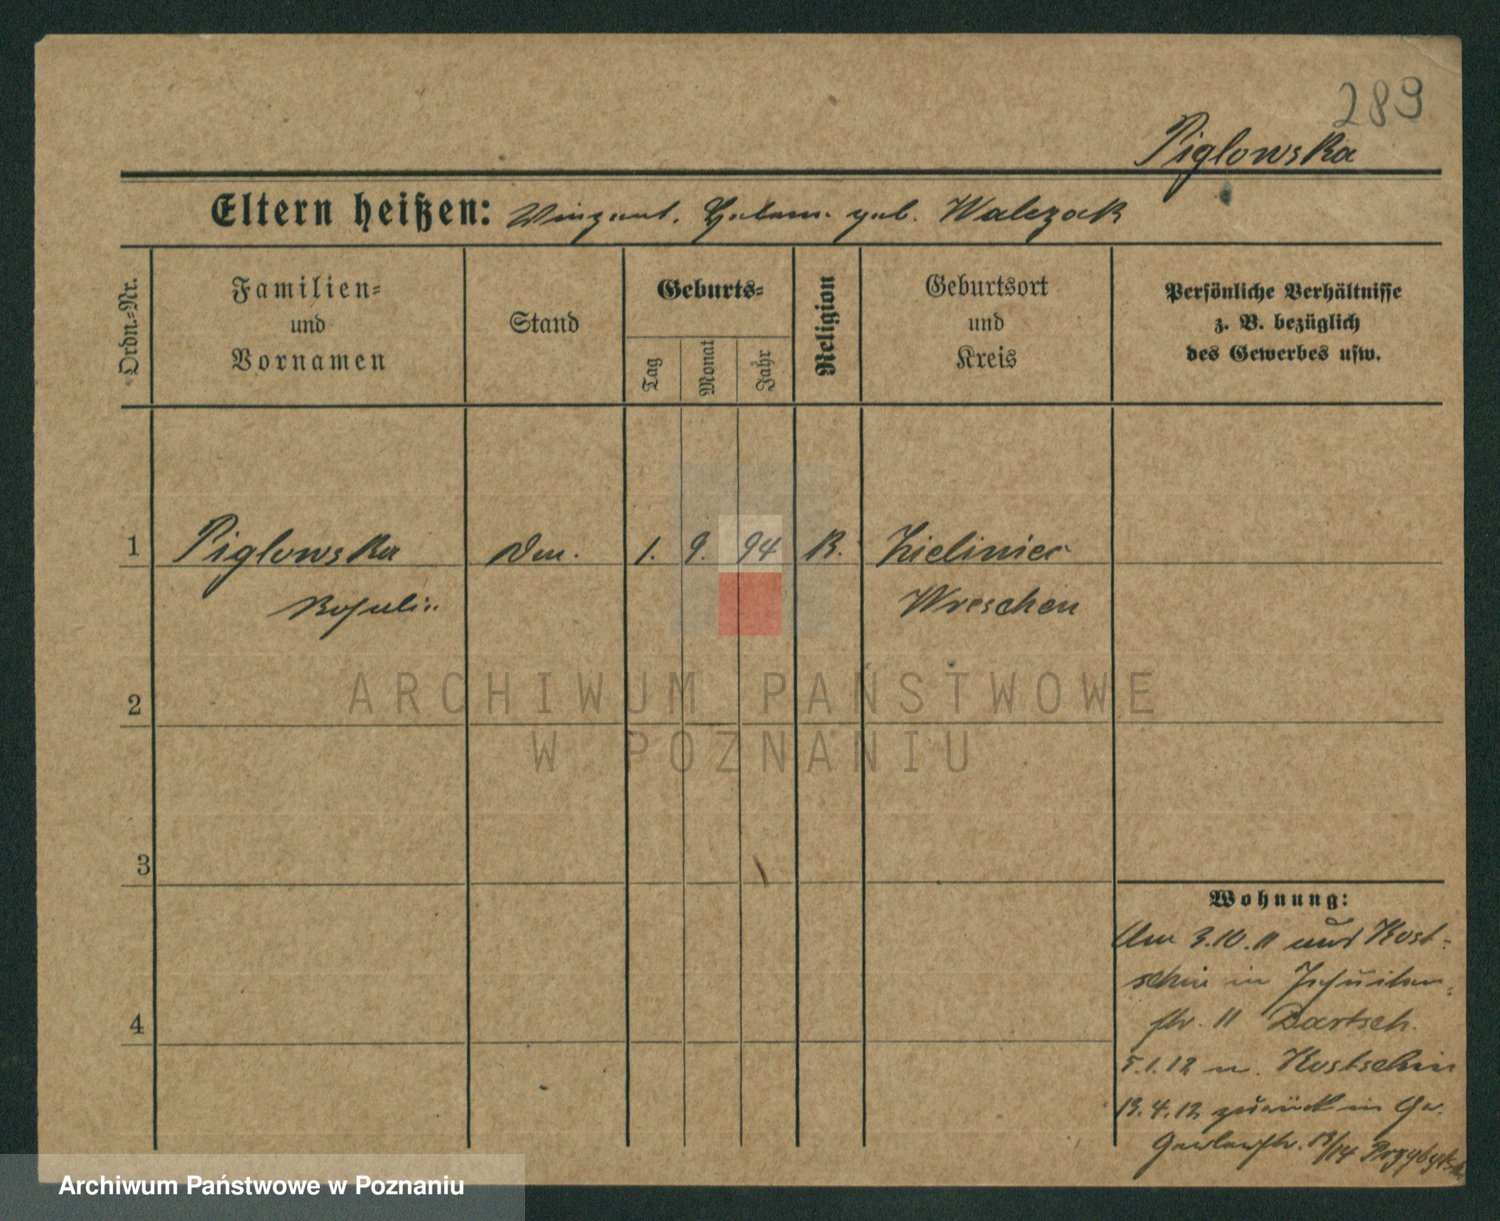 289
Piglowska
Eltern heißen: Vinzent. Helene. geb. Walczack
Ordn.-Nr.
Familien-
und
Vornamen
Stand
Geburts-
Tag
Monat
Jahr
Religion
Geburtsort
und
Kreis
Persönliche Verhältnisse
z. B. bezüglich
des Gewerbes usw.
1 Piglowska 1. 9. 94 K. Zieliniec
Wreschen
2
3
4
Wohnung:
Am 3.10.11 aus Kost-
schin in Jesuiten-
str. 11 Bartsch.
5.1.12 n. Kostschin
13.4.12 zurück in
13/14
ARCHIWUM PAŃSTWOWE
W POZNANIU
Archiwum Państwowe w Poznaniu